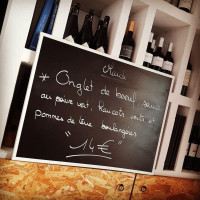 * Onglet de boeuf, sauce
au poivre vert, haricots verts et
pommes de terre boulangères
"14€"